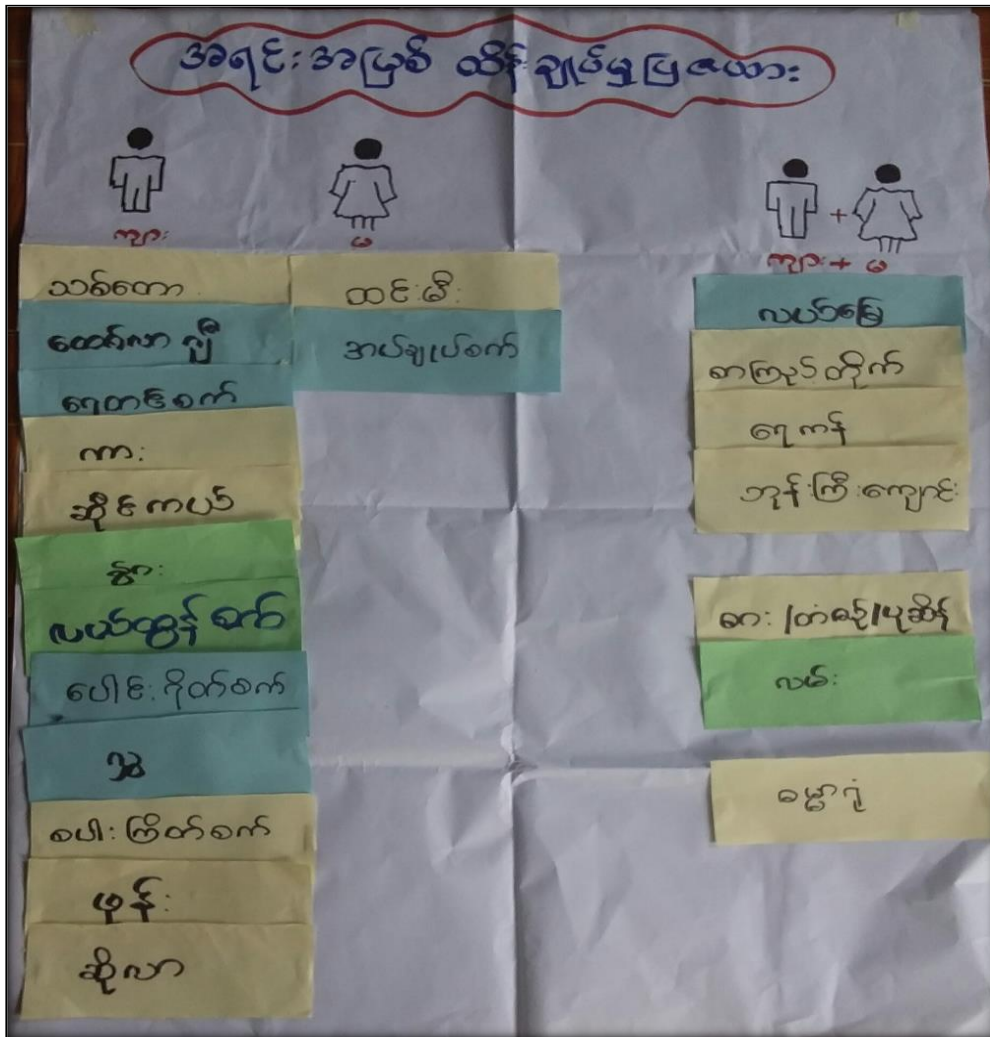 အရင်းအမြစ် ထိန်းချုပ်မှုပြဇယား
ကျား
မ
ကျား + မ
သစ်တော
ထော်လာဂျီ
ရေတင်စက်
ကား
ဆိုင်ကယ်
နွား
လယ်ထွန်စက်
ပေါင်းဂိုတ်စက်
လှဲ
စပါးကြိတ်စက်
ဖုန်း
ဆိုလာ
ထင်းမီး
အပ်ချုပ်စက်
လယ်မြေ
စာကြည့်တိုက်
ရေကန်
ဘုန်းကြီးကျောင်း
ဓား/တံစဉ်/ပုဆိန်
လမ်း
ဓမ္မာရုံ